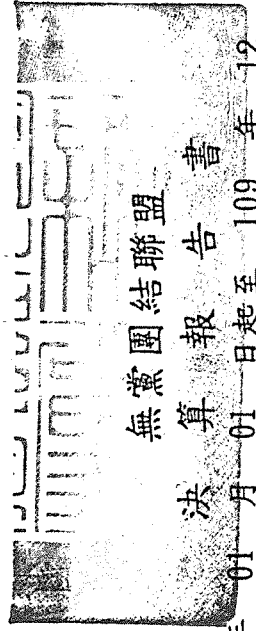 無黨團結聯盟
決算報告書
01 月 01 日起至 109 年 12